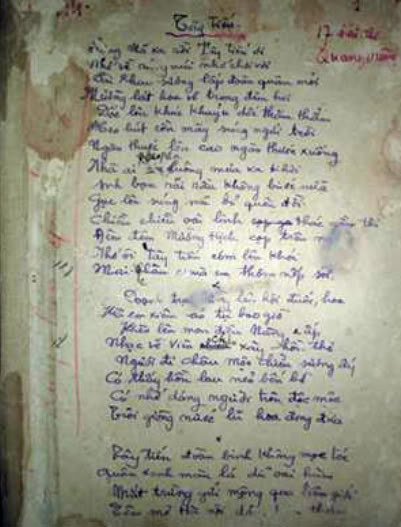 Tây Tiến
17 bài thơ
Quang Dũng
Sông Mã xa rồi Tây tiến ơi
Nhớ về rừng núi nhớ chơi vơi
Sài Khao sương lấp đoàn quân mỏi
Mường lát hoa về trong đêm hơi
Dốc lên khúc khuỷu dốc thăm thẳm
Heo hút cồn mây súng ngửi trời
Ngàn thước lên cao ngàn thước xuống
Nhà ai luông mưa xa khơi
Anh bạn dãi dầu không bước nữa
Gục lên súng mũ bỏ quên đời
Chiều chiều oai linh thác gầm thét
Đêm đêm Mường Hịch cọp trêu
Nhớ ôi Tây tiến cơm lên khói
Mai Châu mùa em thơm nếp xôi
Doanh trại lên hội đuốc hoa
Kìa em xiêm áo tự bao giờ
Khèn lên man điệu nàng e ấp
Nhạc về Viên xây hồn thơ
Người đi Châu Mộc chiều sương ấy
Có thấy hồn lau nẻo bến bờ
Có nhớ dáng người trên độc mộc
Trôi giòng nước lũ hoa đong đưa
Tây tiến đoàn binh không mọc tóc
Quân xanh màu lá dữ oai hùm
Mắt trừng gửi mộng qua biên giới
Đêm mơ Hà nội